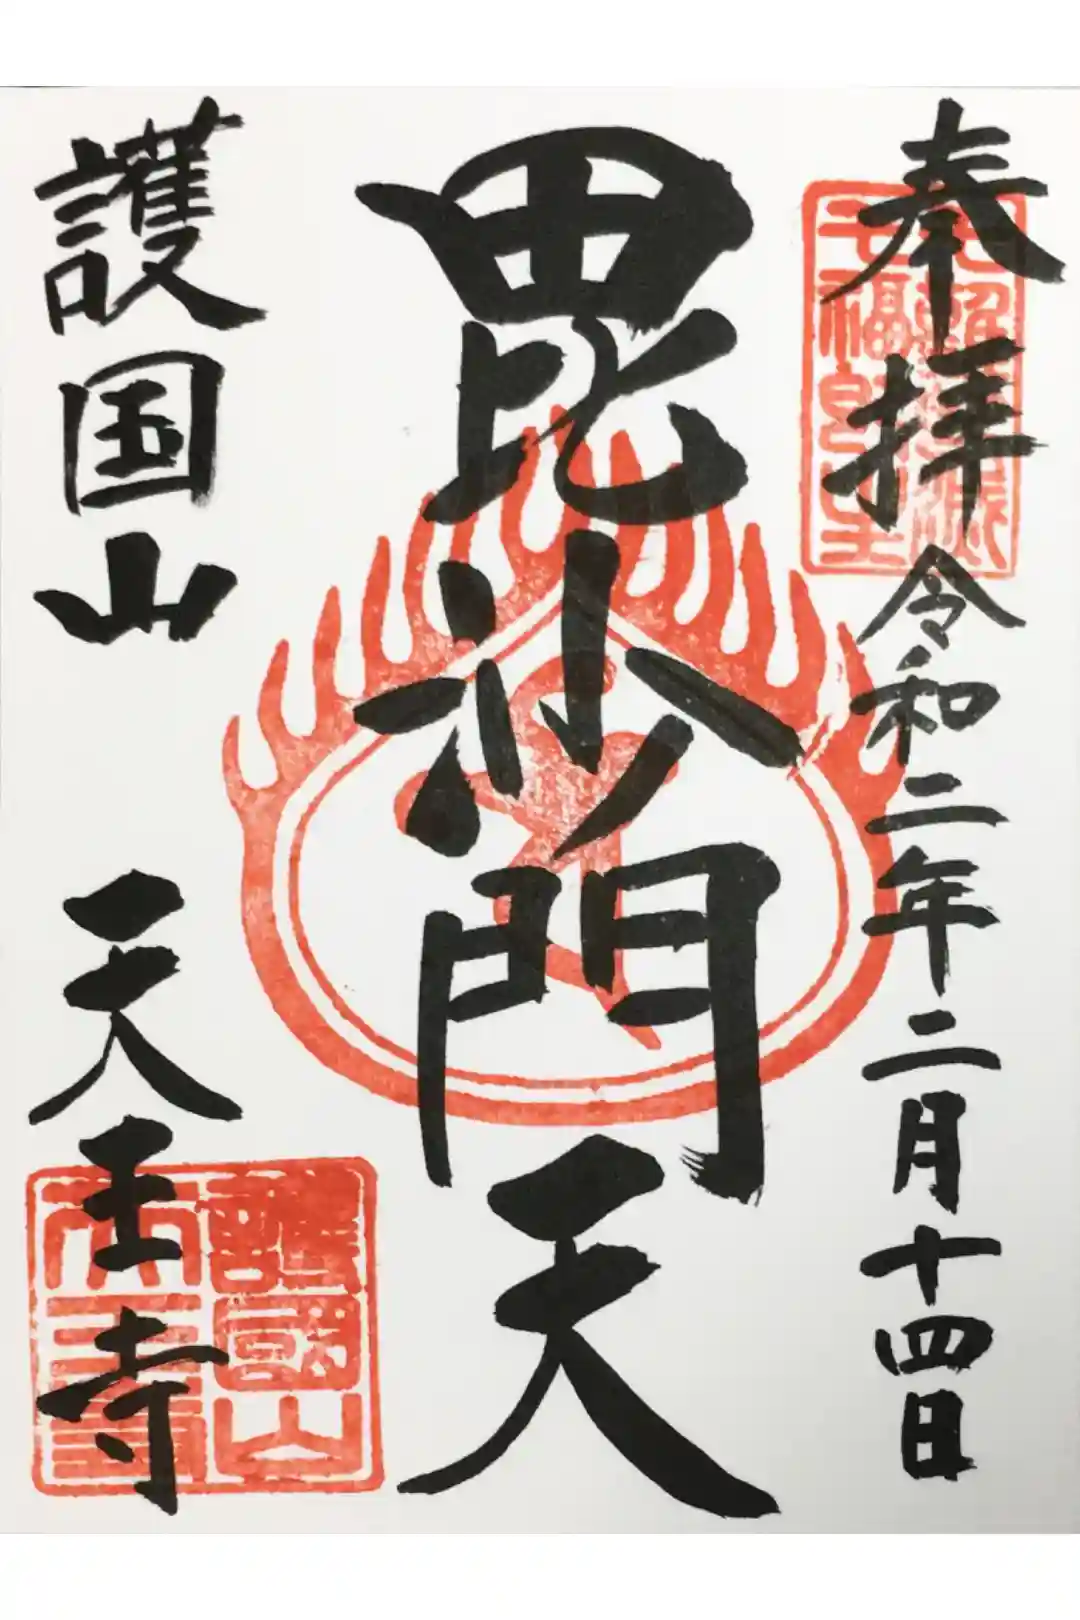 奉拝 令和二年二月十四日
毘沙門天
護国山 天王寺
護國山
天王寺